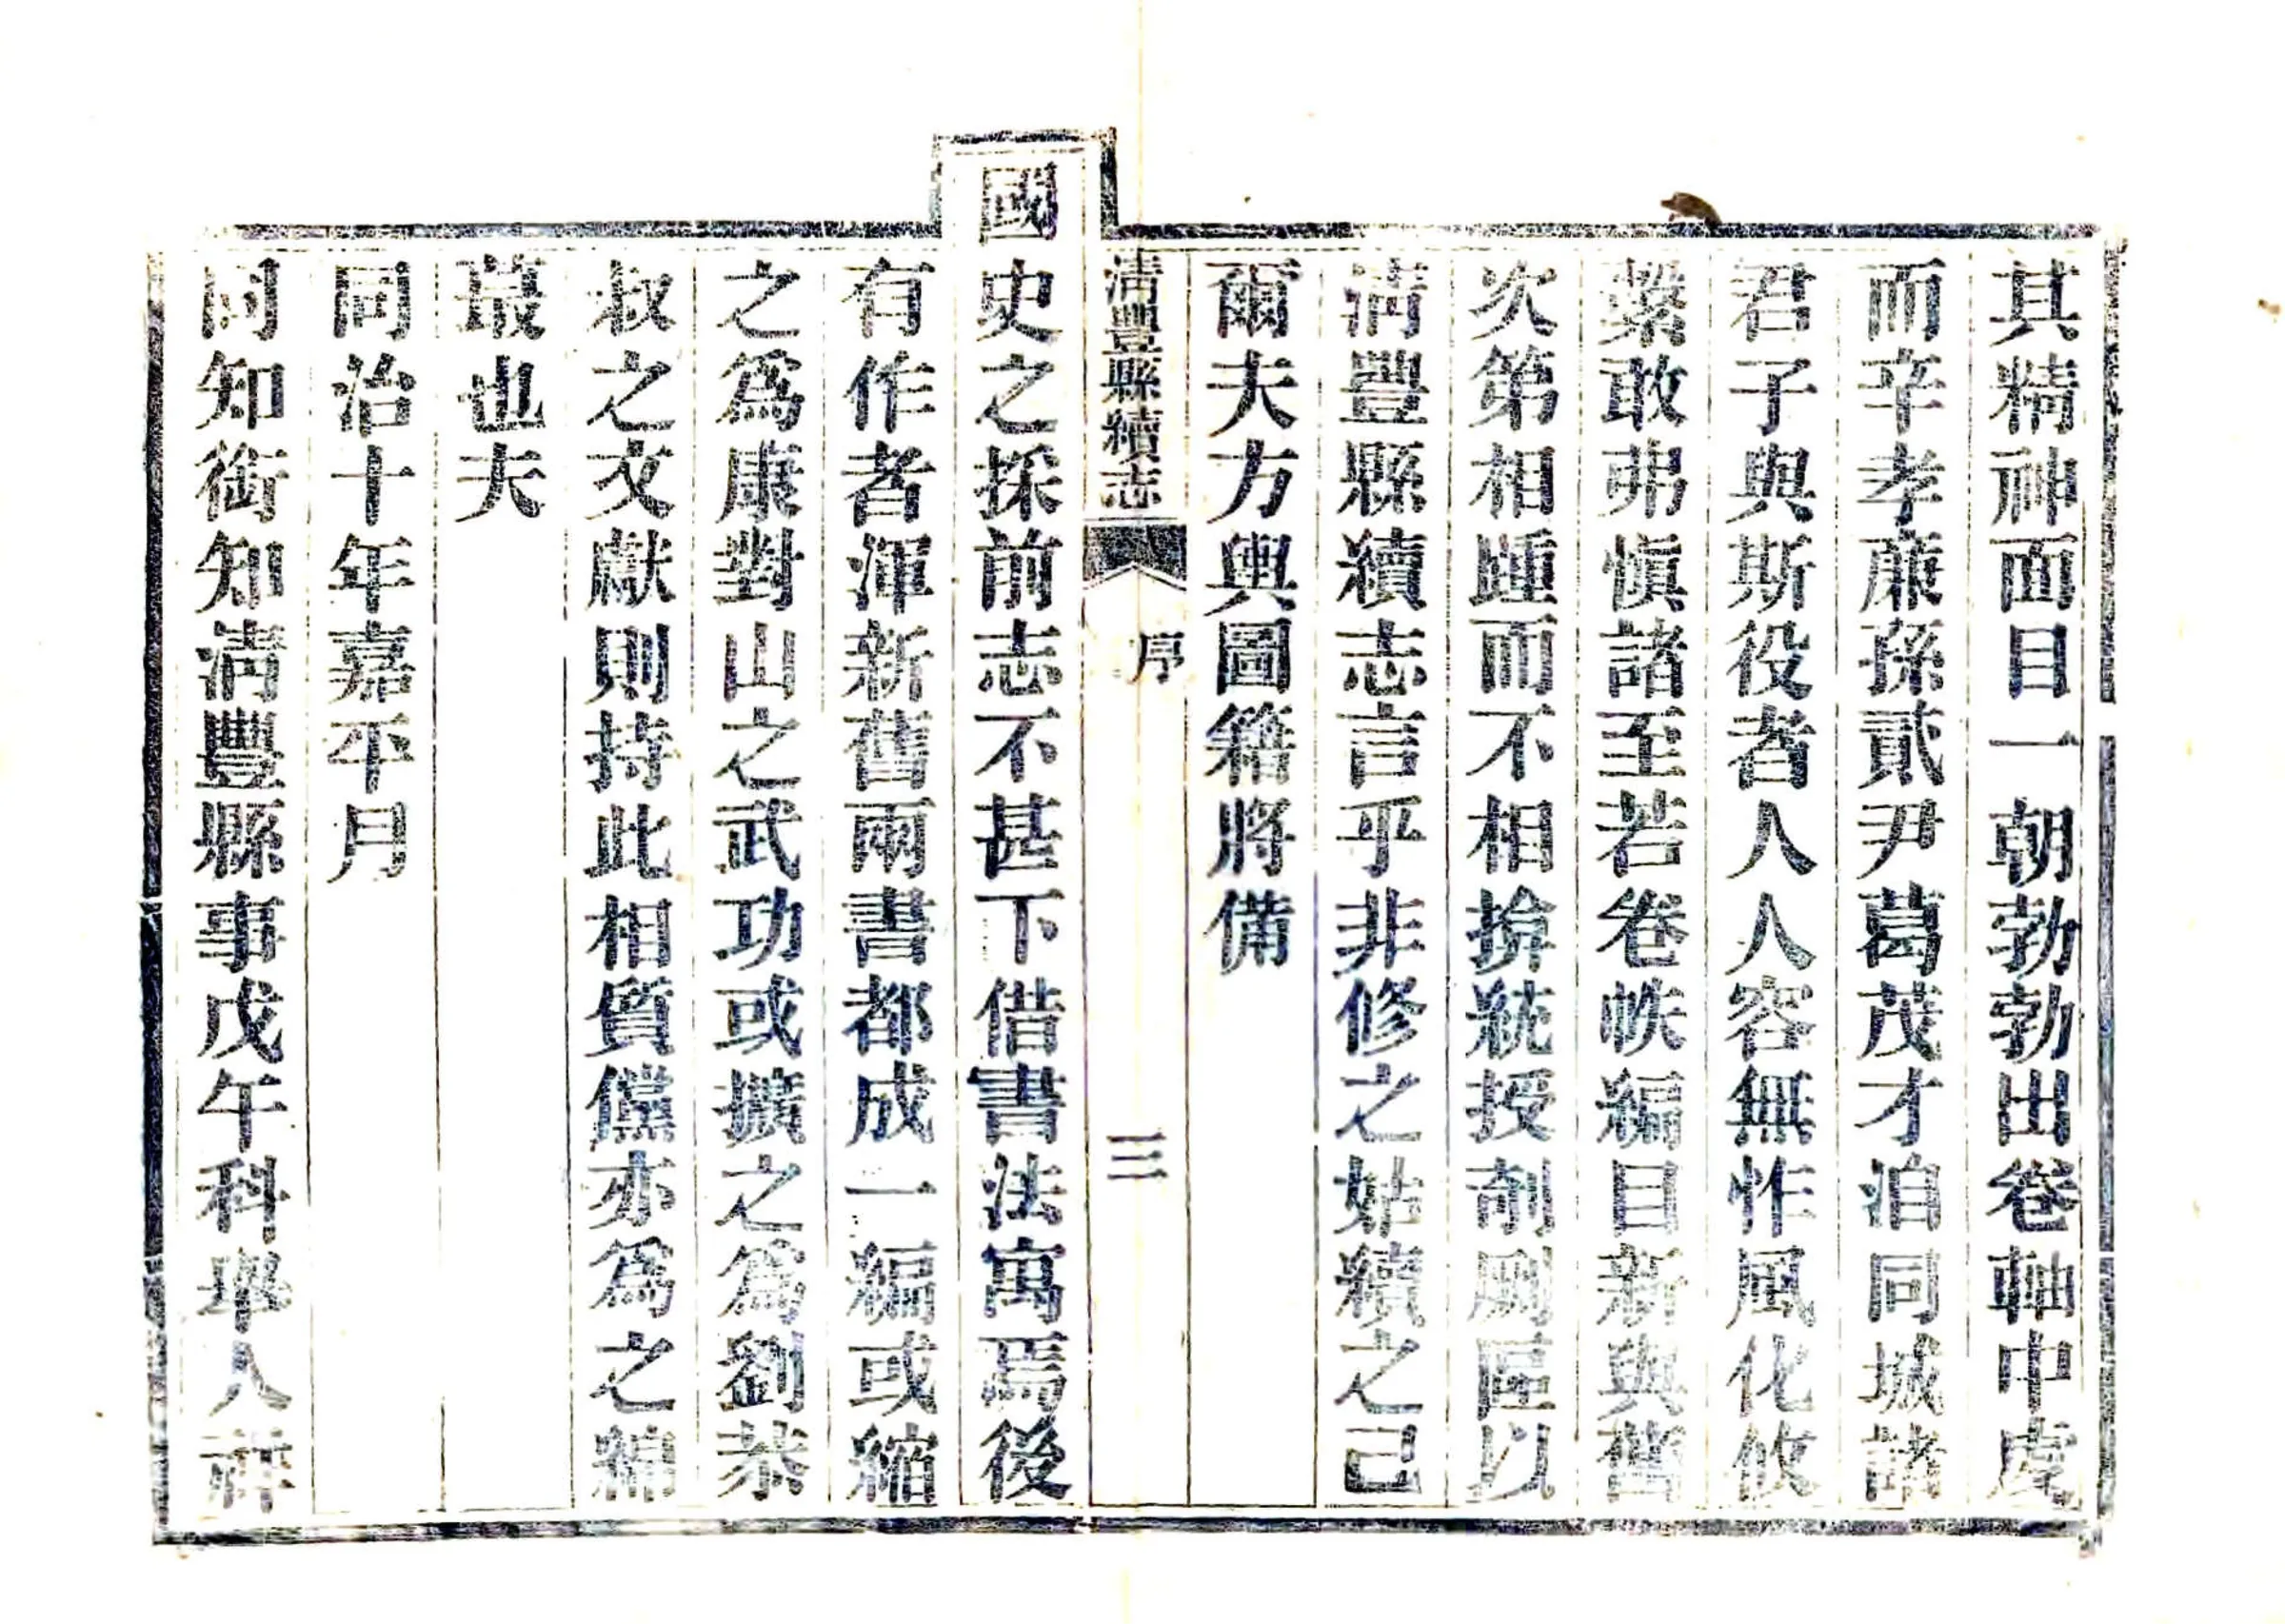 其精神面目一朝勃勃出卷軸中處
而辛孝廉孫貳尹葛茂才洎同城諸
君子與斯役者人人容無怍風化攸
繫敢弗慎諸至若卷帙編目新與舊
次第相踵而不相揜統授剞劂區以
淸豐縣續志言乎非修之姑續之己
爾夫方輿圖籍將備
淸豐縣續志
序
三
國史之採前志不甚下借書法寓焉後
有作者渾新舊兩書都成一編或縮
之爲康對山之武功或擴之爲劉恭
叔之文獻則持此相質儻亦爲之綿
蕞也夫
同治十年嘉平月
同知銜知淸豐縣事戊午科舉人祥